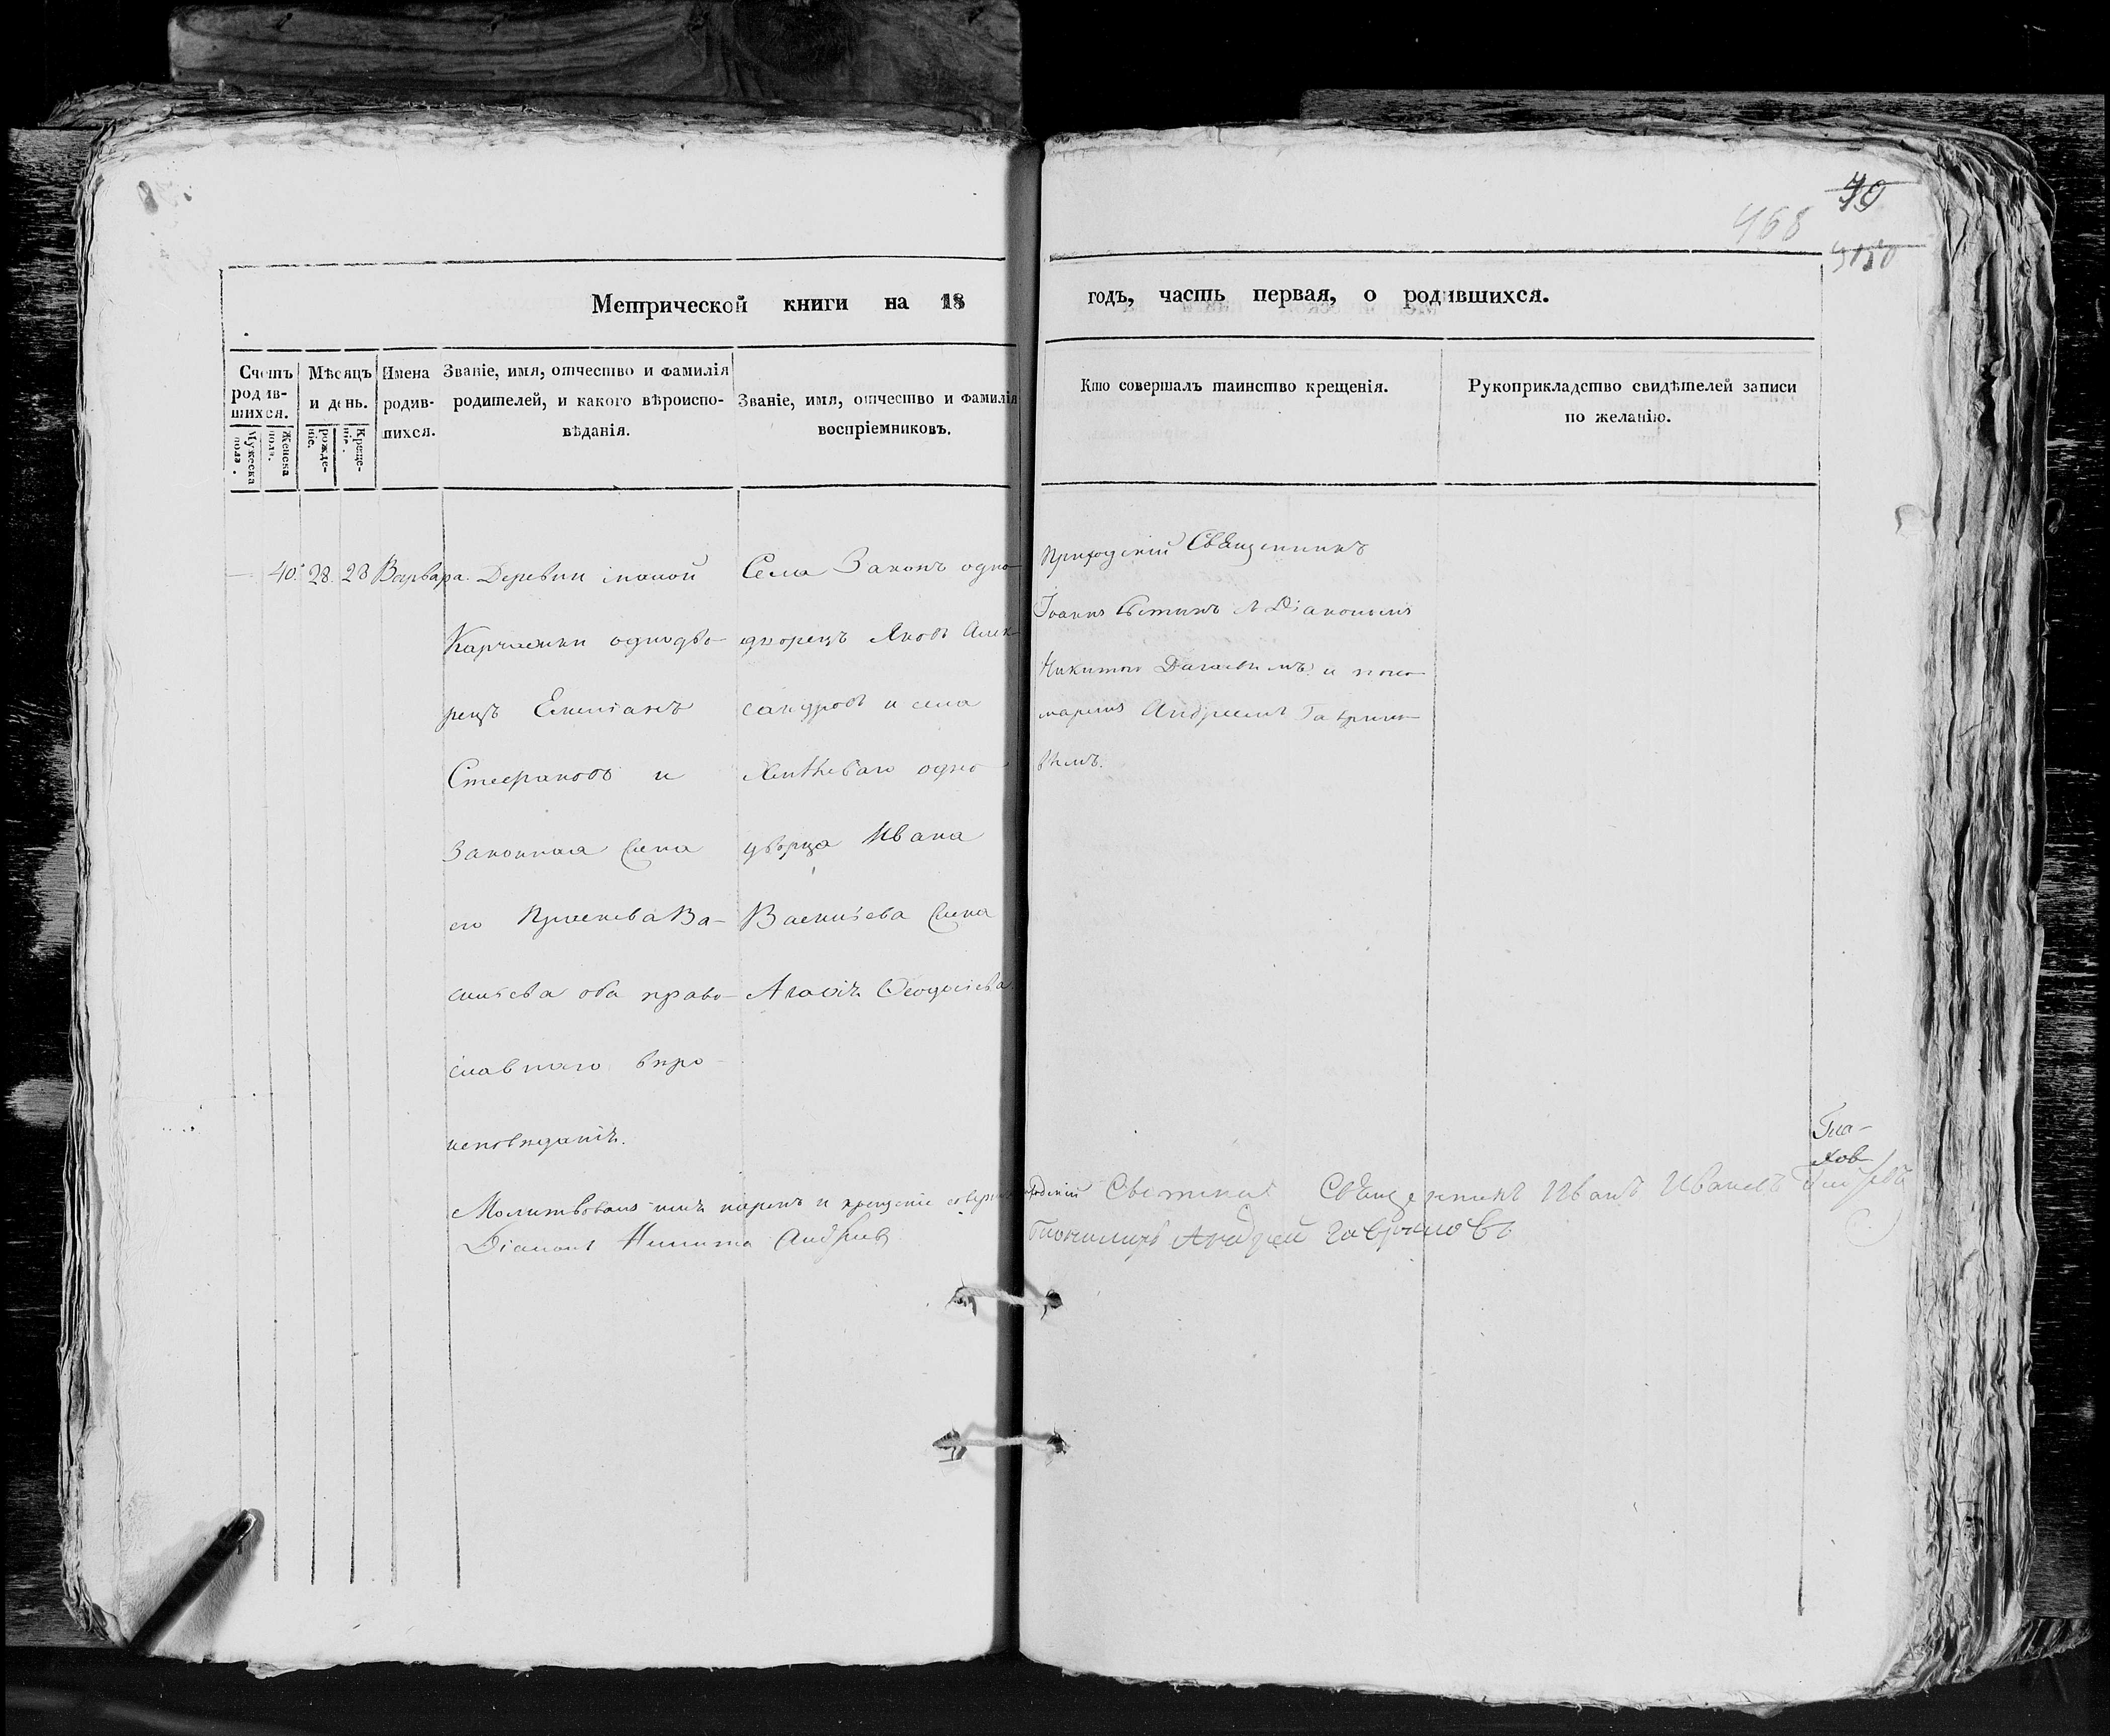 40
468
Метрической книги на 18 годъ, часть первая, о родившихся.
Счетъ родив-шихся.
Мужеска пола.
Женска пола.
Мѣсяцъ и день.
рожде-ніе.
Креще-ніе.
Имена родив-шихся.
Званіе, имя, отчество и фамилія
родителей, и какого вѣроиспо-
вѣданія.
Званіе, имя, отчество и фамилія
воспріемниковъ.
Кто совершалъ таинство крещенія.
Рукоприкладство свидѣтелей записи
по желанію.
40. 28. 28 Варвара.
Деревни
однодво-
рецъ Емеліанъ
Стефановъ и
Законная жена
его Праскева Ва-
силіева оба право-
славнаго вѣро-
исповѣданія.
Села однo-
дворецъ Яковъ Алек-
сандровъ и села
одно-
дворца Ивана
Василіева жена
Ѳеодосіева.
Приходскій Священникъ
Іоаннъ съ Діакономъ
Никитою и поно-
маремъ Андреемъ Гаврило-
вымъ.
Молитвовалъ имя нарекъ и крещеніе
Священникъ Иванъ Ивановъ
Діаконъ Никита Андреевъ
Андрей Гавриловъ